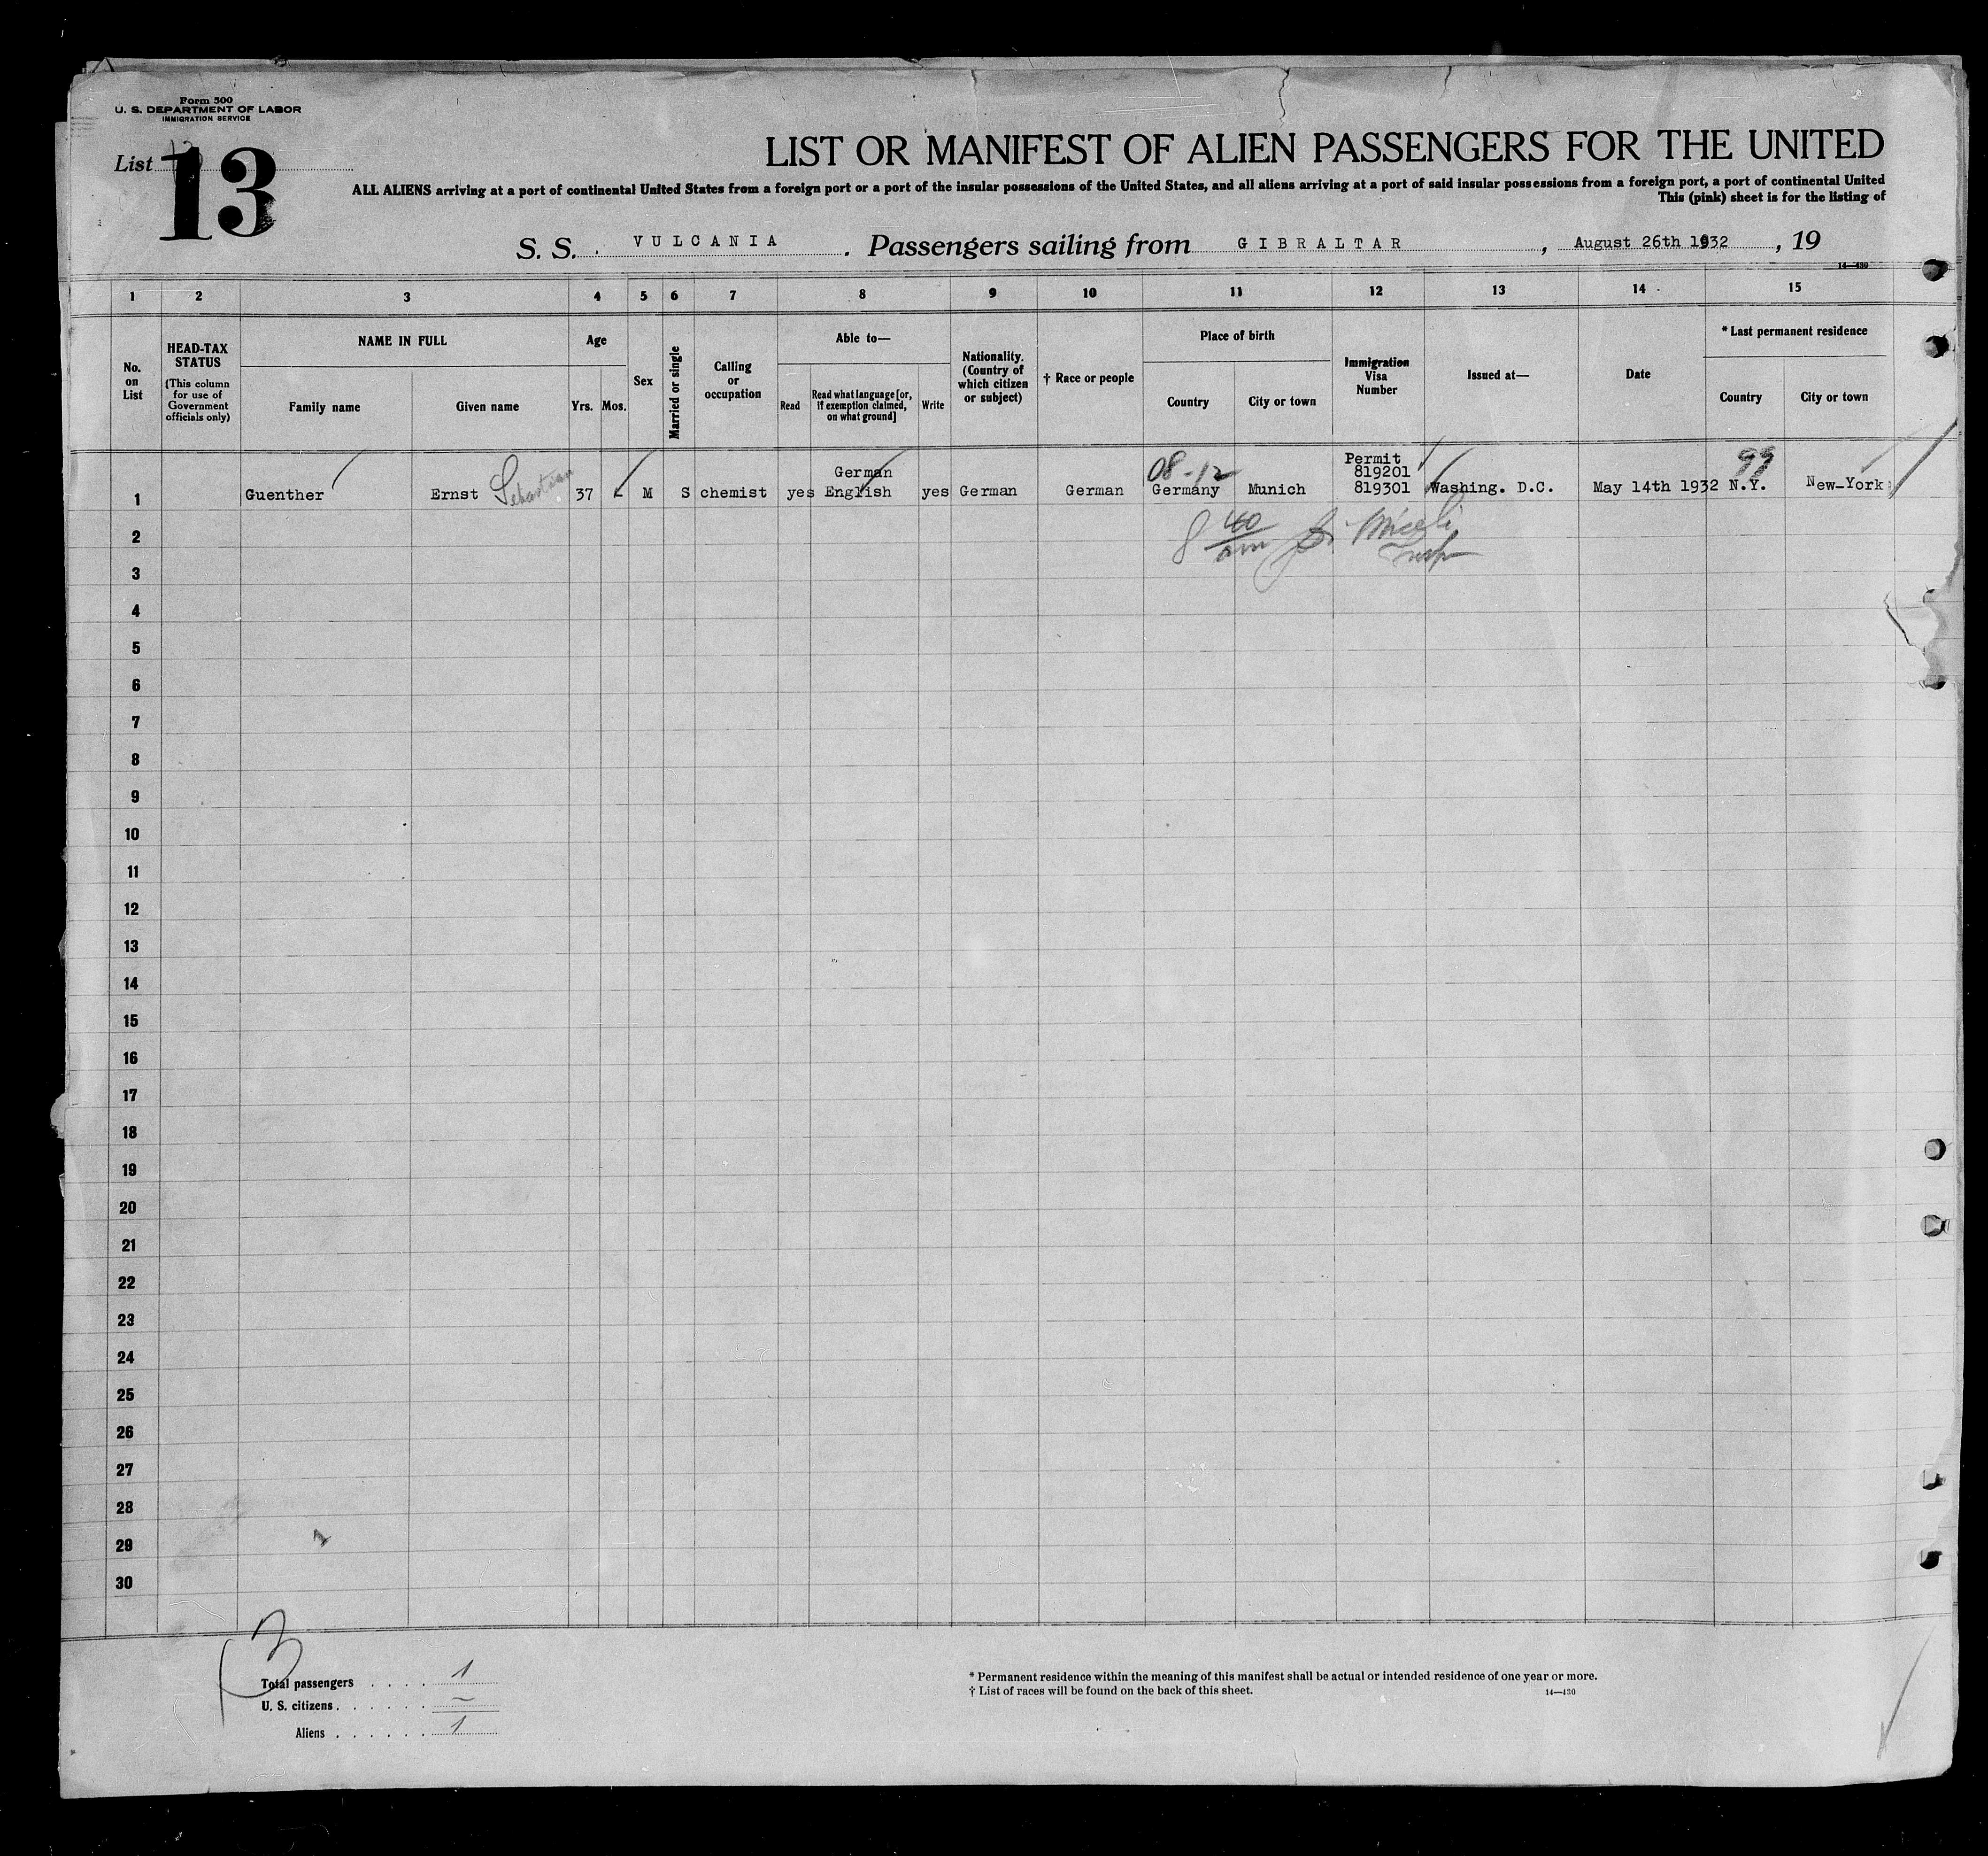 Form 500
U. S. DEPARTMENT OF LABOR
IMMIGRATION SERVICE
List 13
LIST OR MANIFEST OF ALIEN PASSENGERS FOR THE UNITED
ALL ALIENS arriving at a port of continental United States from a foreign port or a port of the insular possessions of the United States, and all aliens arriving at a port of said insular possessions from a foreign port, a port of continental United
This (pink) sheet is for the listing of
S. S. VULCANIA. Passengers sailing from GIBRALTAR, August 26th 1932, 19
14—430
1 2 3 4 5 6 7 8 9 10 11 12 13 14 15
No. on List
HEAD-TAX STATUS
(This column for use of Government officials only)
NAME IN FULL
Family name
Given name
Age
Yrs. Mos.
Sex
Married or single
Calling or occupation
Able to—
Read
Read what language [or, if exemption claimed, on what ground]
Write
Nationality. (Country of which citizen or subject)
† Race or people
Place of birth
Country
City or town
Immigration Visa Number
Issued at—
Date
* Last permanent residence
Country
City or town
08-12
99
Permit
German 819201
1 Guenther Ernst Sebastian 37 - M S chemist yes English yes German German Germany Munich 819301 Washing. D.C. May 14th 1932 N.Y. New-York
8 40 am Miceli
Insp
2
3
4
5
6
7
8
9
10
11
12
13
14
15
16
17
18
19
20
21
22
23
24
25
26
27
28
29
30
1
Total passengers . . . . 1
U. S. citizens . . . . . . —
Aliens . . . . . . 1
* Permanent residence within the meaning of this manifest shall be actual or intended residence of one year or more.
† List of races will be found on the back of this sheet.
14—430